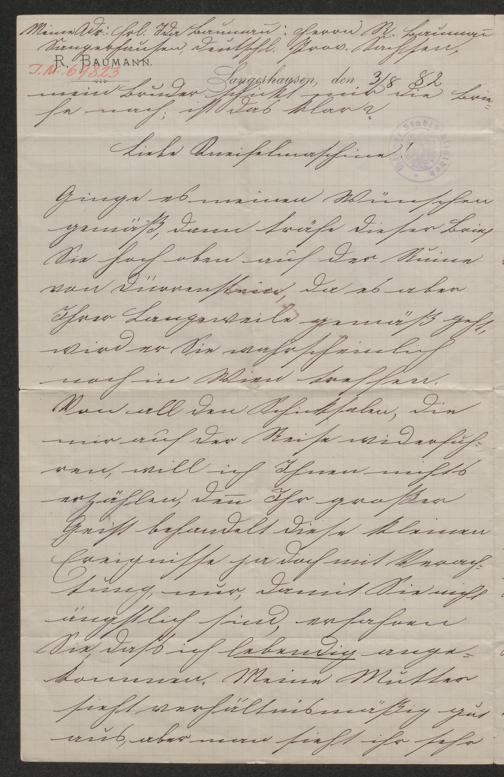 Meine Adr: Frl. Ida Baumann: Herrn R. Baumann
Sangerhausen, Deutschl. Prov. Sachsen.
R. BAUMANN.
I.N. 67823
Sangerhausen, den 3/8 82.
mein Bruder schickt mir die Brie-
fe nach; ist das klar?
Liebe Kneifelmaschine!
Ginge es meinen Wünschen
gemäß, dann träfe dieser Brief
Sie hoch oben auf der Ruine
von Dürrenstein, da es aber
Ihrer Langeweile gemäß geht,
wird er Sie wahrscheinlich
noch in Wien treffen.
Von all den Schicksalen, die
mir auf der Reise widerfuh-
ren, will ich Ihnen nichts
erzählen, denn Ihr großer
Geist behandelt diese kleinen
Ereignisse ja doch mit Verach-
tung, nur, damit Sie nicht
ängstlich sind, erfahren
Sie, daß ich lebendig ange-
kommen. Meine Mutter
sieht verhältnismäßig gut
aus, aber man sieht ihr sehr